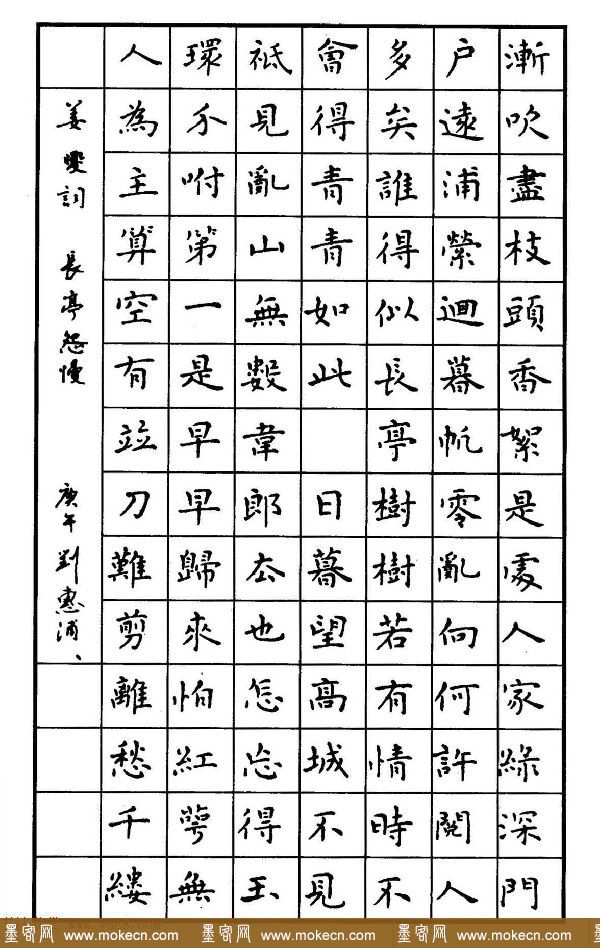 漸吹盡枝頭香絮是處人家綠深門
户遠浦縈迴暮帆零亂向何許閱人
多矣誰得似長亭樹樹若有情時不
會得青青如此 日暮望高城不見
祇見亂山無數韋郎去也怎忘得玉
環分咐第一是早早歸來怕紅萼無
人為主算空有竝刀難剪離愁千縷
姜夔詞 長亭怨慢 庚午 劉惠浦
墨客网 www.mokecn.com 墨客网 www.mokecn.com 墨客网 www.mokecn.com